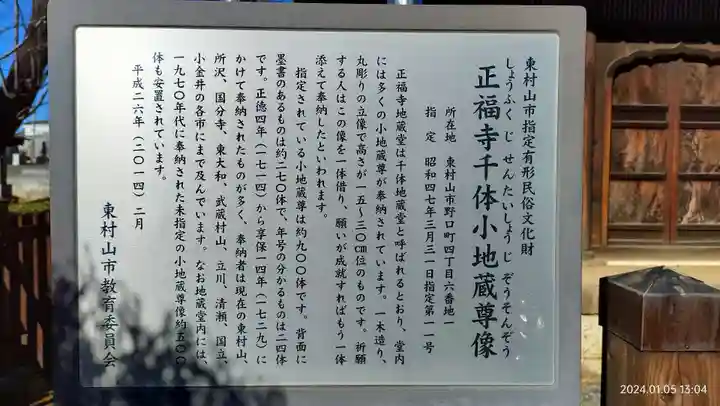 東村山市指定有形民俗文化財
しょうふく じ せんたいしょう じ ぞうそんぞう
正福寺千体小地蔵尊像
所在地 東村山市野口町四丁目六番地一
指 定 昭和四七年三月三一日指定第一一号
正福寺地蔵堂は千体地蔵堂と呼ばれるとおり、堂内
には多くの小地蔵尊が奉納されています。一木造り、
丸彫りの立像で高さが一五～三〇㎝位のものです。祈願
する人はこの像を一体借り、願いが成就すればもう一体
添えて奉納したといわれます。
指定されている小地蔵尊は約九〇〇体です。背面に
墨書のあるものは約二七〇体で、年号の分かるものは二四体
です。正徳四年(一七一四)から享保一四年(一七二九)に
かけて奉納されたものが多く、奉納者は現在の東村山、
所沢、国分寺、東大和、武蔵村山、立川、清瀬、国立、
小金井の各市にまで及んでいます。なお地蔵堂内には、
一九七〇年代に奉納された未指定の小地蔵尊像約五〇〇
体も安置されています。
平成二六年(二〇一四)二月
東村山市教育委員会
2024.01.05 13:04